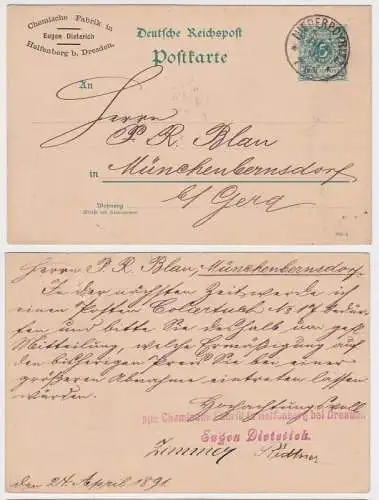 Chemische Fabrik in
Eugen Dieterich
Helfenberg b. Dresden.
Deutsche Reichspost
Postkarte
NIEDERPOYRITZ
An
Herrn
P. R. Blau
in Münchenbernsdorf
b/ Gera
Wohnung
(Straße und Hausnummer)
Herrn P. R. Blau, Münchenbernsdorf.
In der nächsten Zeit werde ich
einen Posten Colartuch No 17 bedür-
fen und bitte Sie deshalb um gef.
Mitteilung, welche Ermäßigung auf
den bisherigen Preis Sie bei einer
größeren Abnahme eintreten lassen
würden.
Hochachtungsvoll
ppa Chemische Fabrik in Helfenberg bei Dresden.
Eugen Dieterich.
den 24. April 1891.